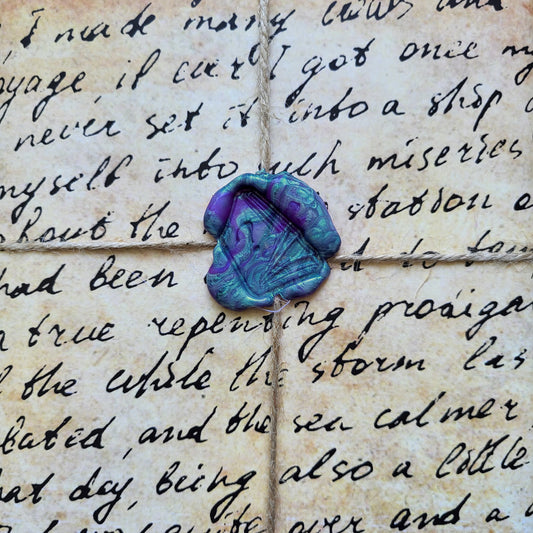 , I made many vows and
oyage, if ever I got once my
never set it into a ship
myself into such miseries
about the station
had been to
a true repenting prodigal
the while the storm las
bated, and the sea calmer,
hat day, being also a little
over and a